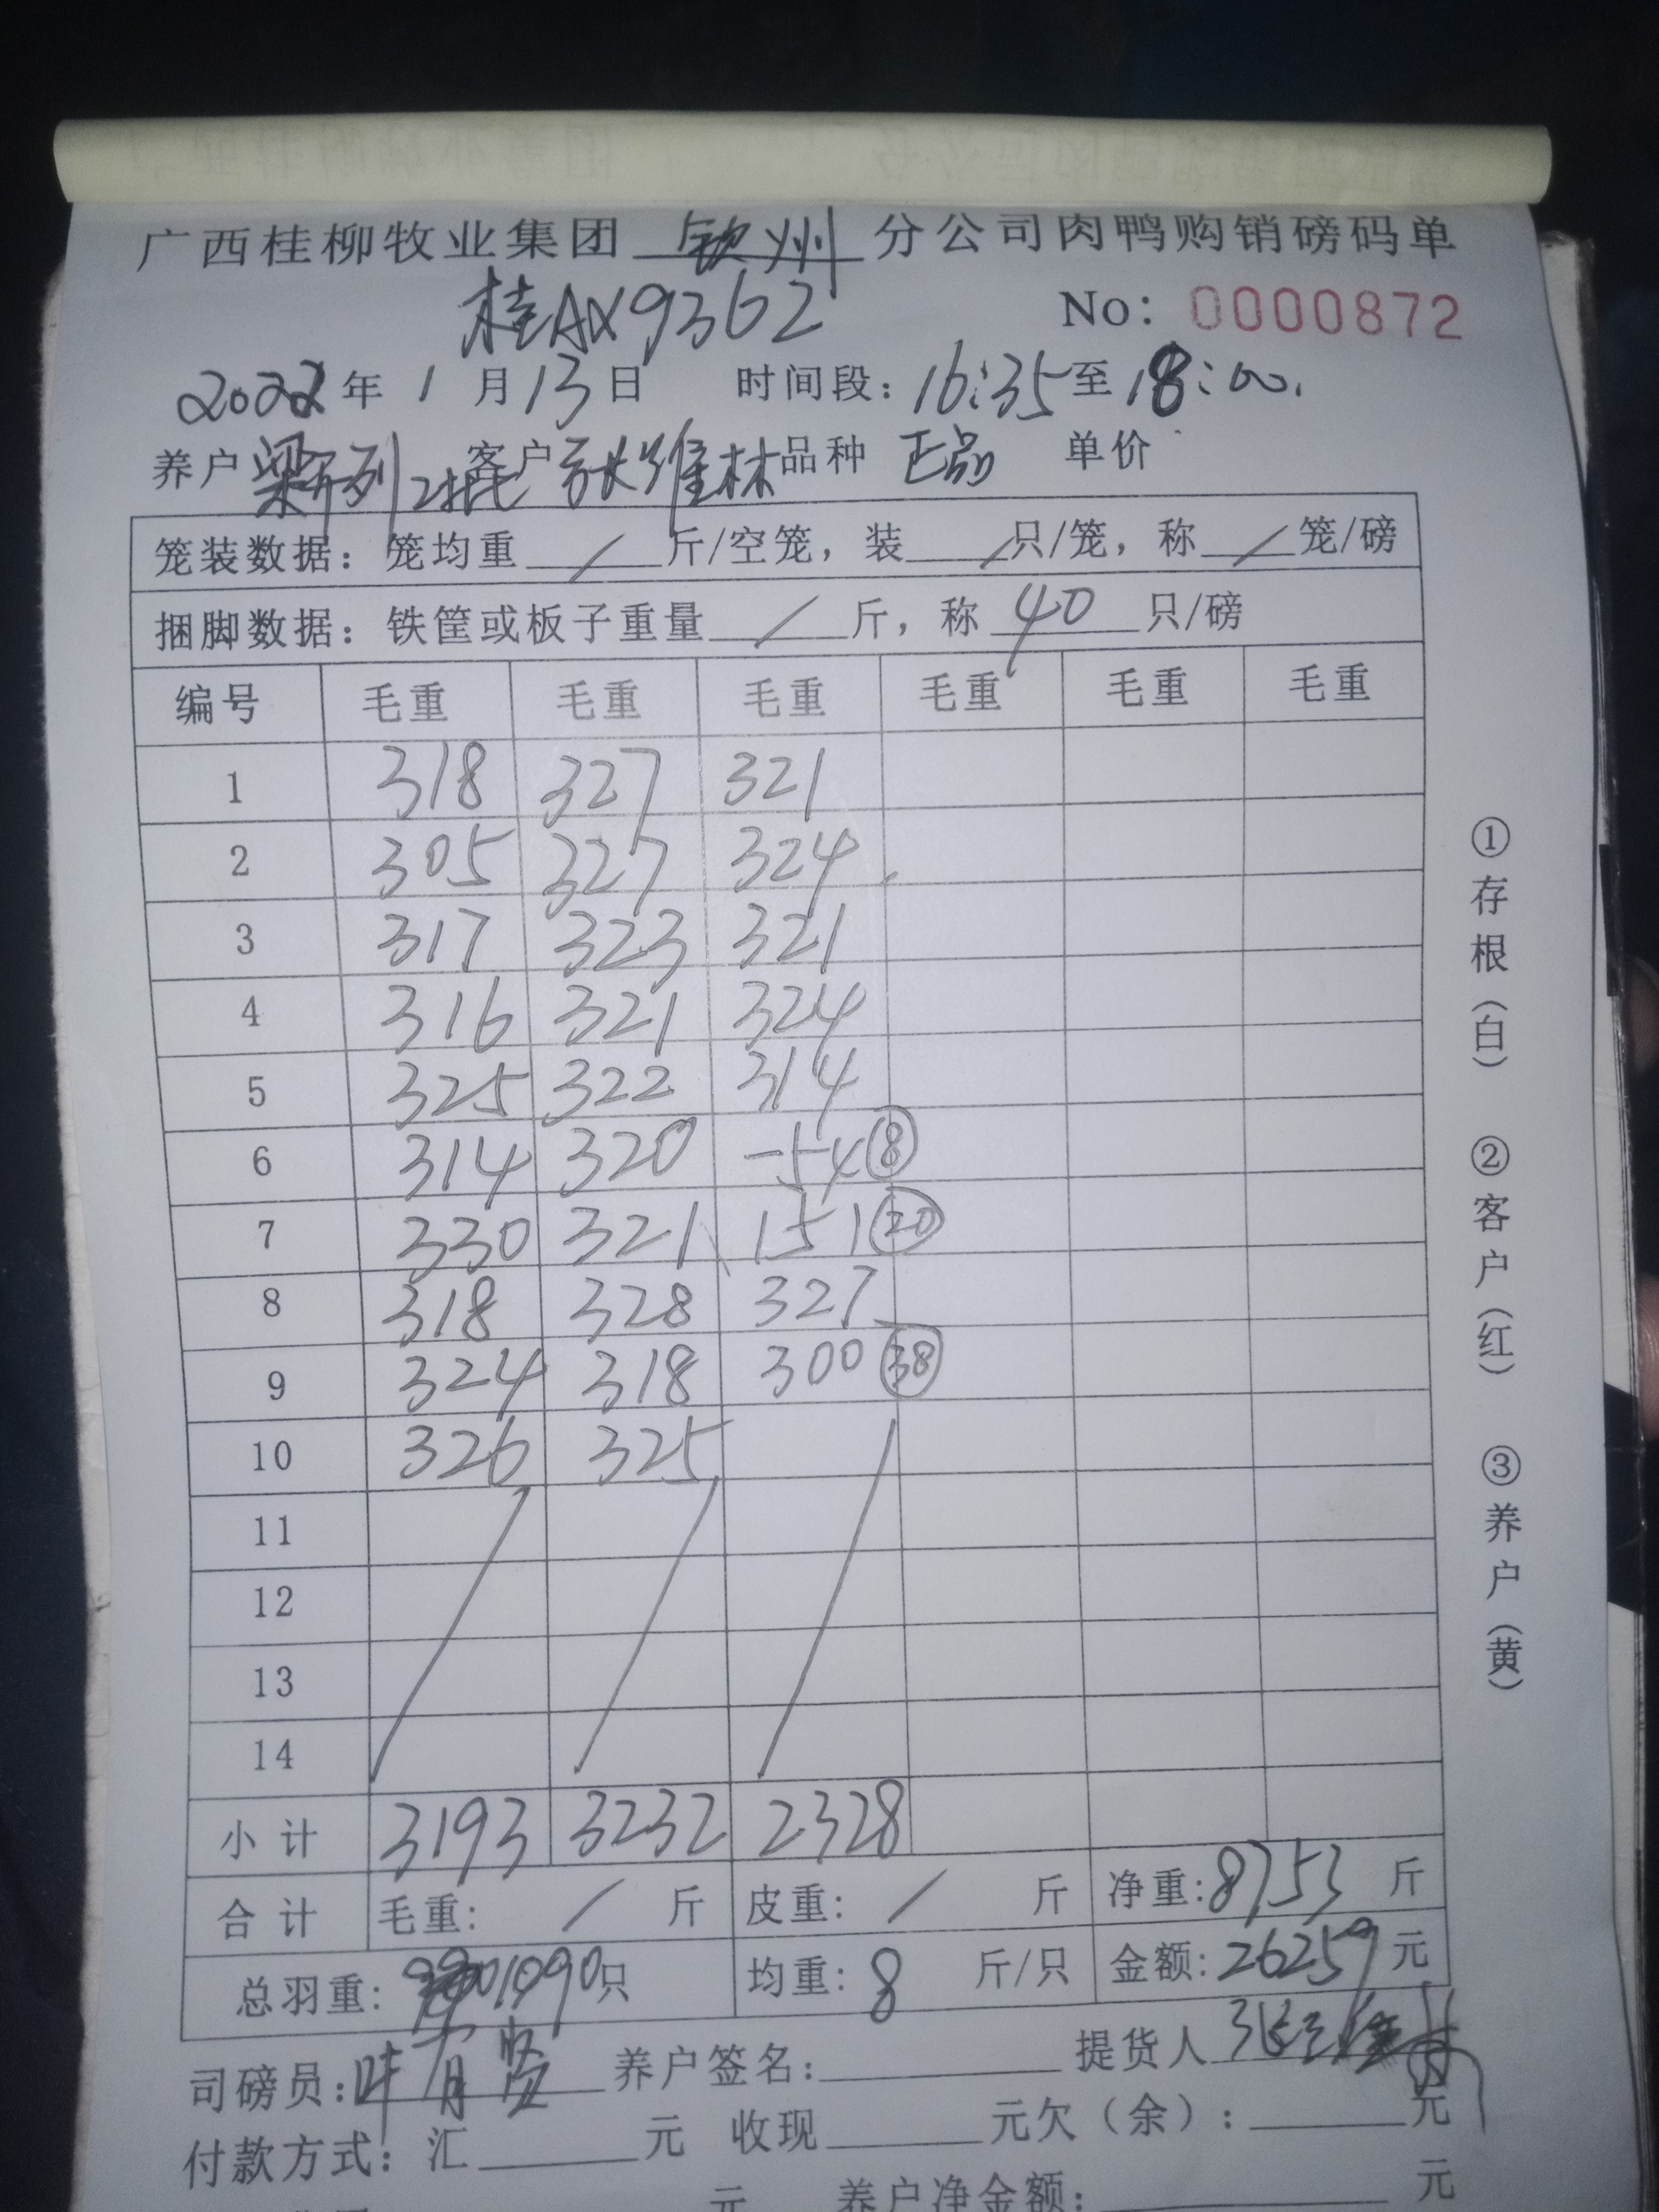 广西桂柳牧业集团 钦州 分公司肉鸭购销磅码单
桂AX9362 No: 0000872
2022年 1 月 13 日 时间段: 16:35 至 18:00.
养户 梁开列 2批 客户 张维林 品种 正品 单价
笼装数据: 笼均重 / 斤/空笼, 装 / 只/笼, 称 / 笼/磅
捆脚数据: 铁筐或板子重量 / 斤, 称 40 只/磅
编号 毛重 毛重 毛重 毛重 毛重 毛重
1 318 327 321
2 305 327 324
3 317 323 321
4 316 321 324
5 325 322 314
6 314 320 -54 ⑧
7 330 321 151 ⑳
8 318 328 327
9 324 318 300 ㊳
10 326 325
11
12
13
14
小计 3193 3232 2328
合计 毛重: / 斤 皮重: / 斤 净重: 8753 斤
总羽重: 1090只 均重: 8 斤/只 金额: 26259 元
司磅员: 叶 养户签名: 提货人
付款方式: 汇 元 收现 元欠(余): 元
元 养户净金额: 元
①存根(白) ②客户(红) ③养户(黄)